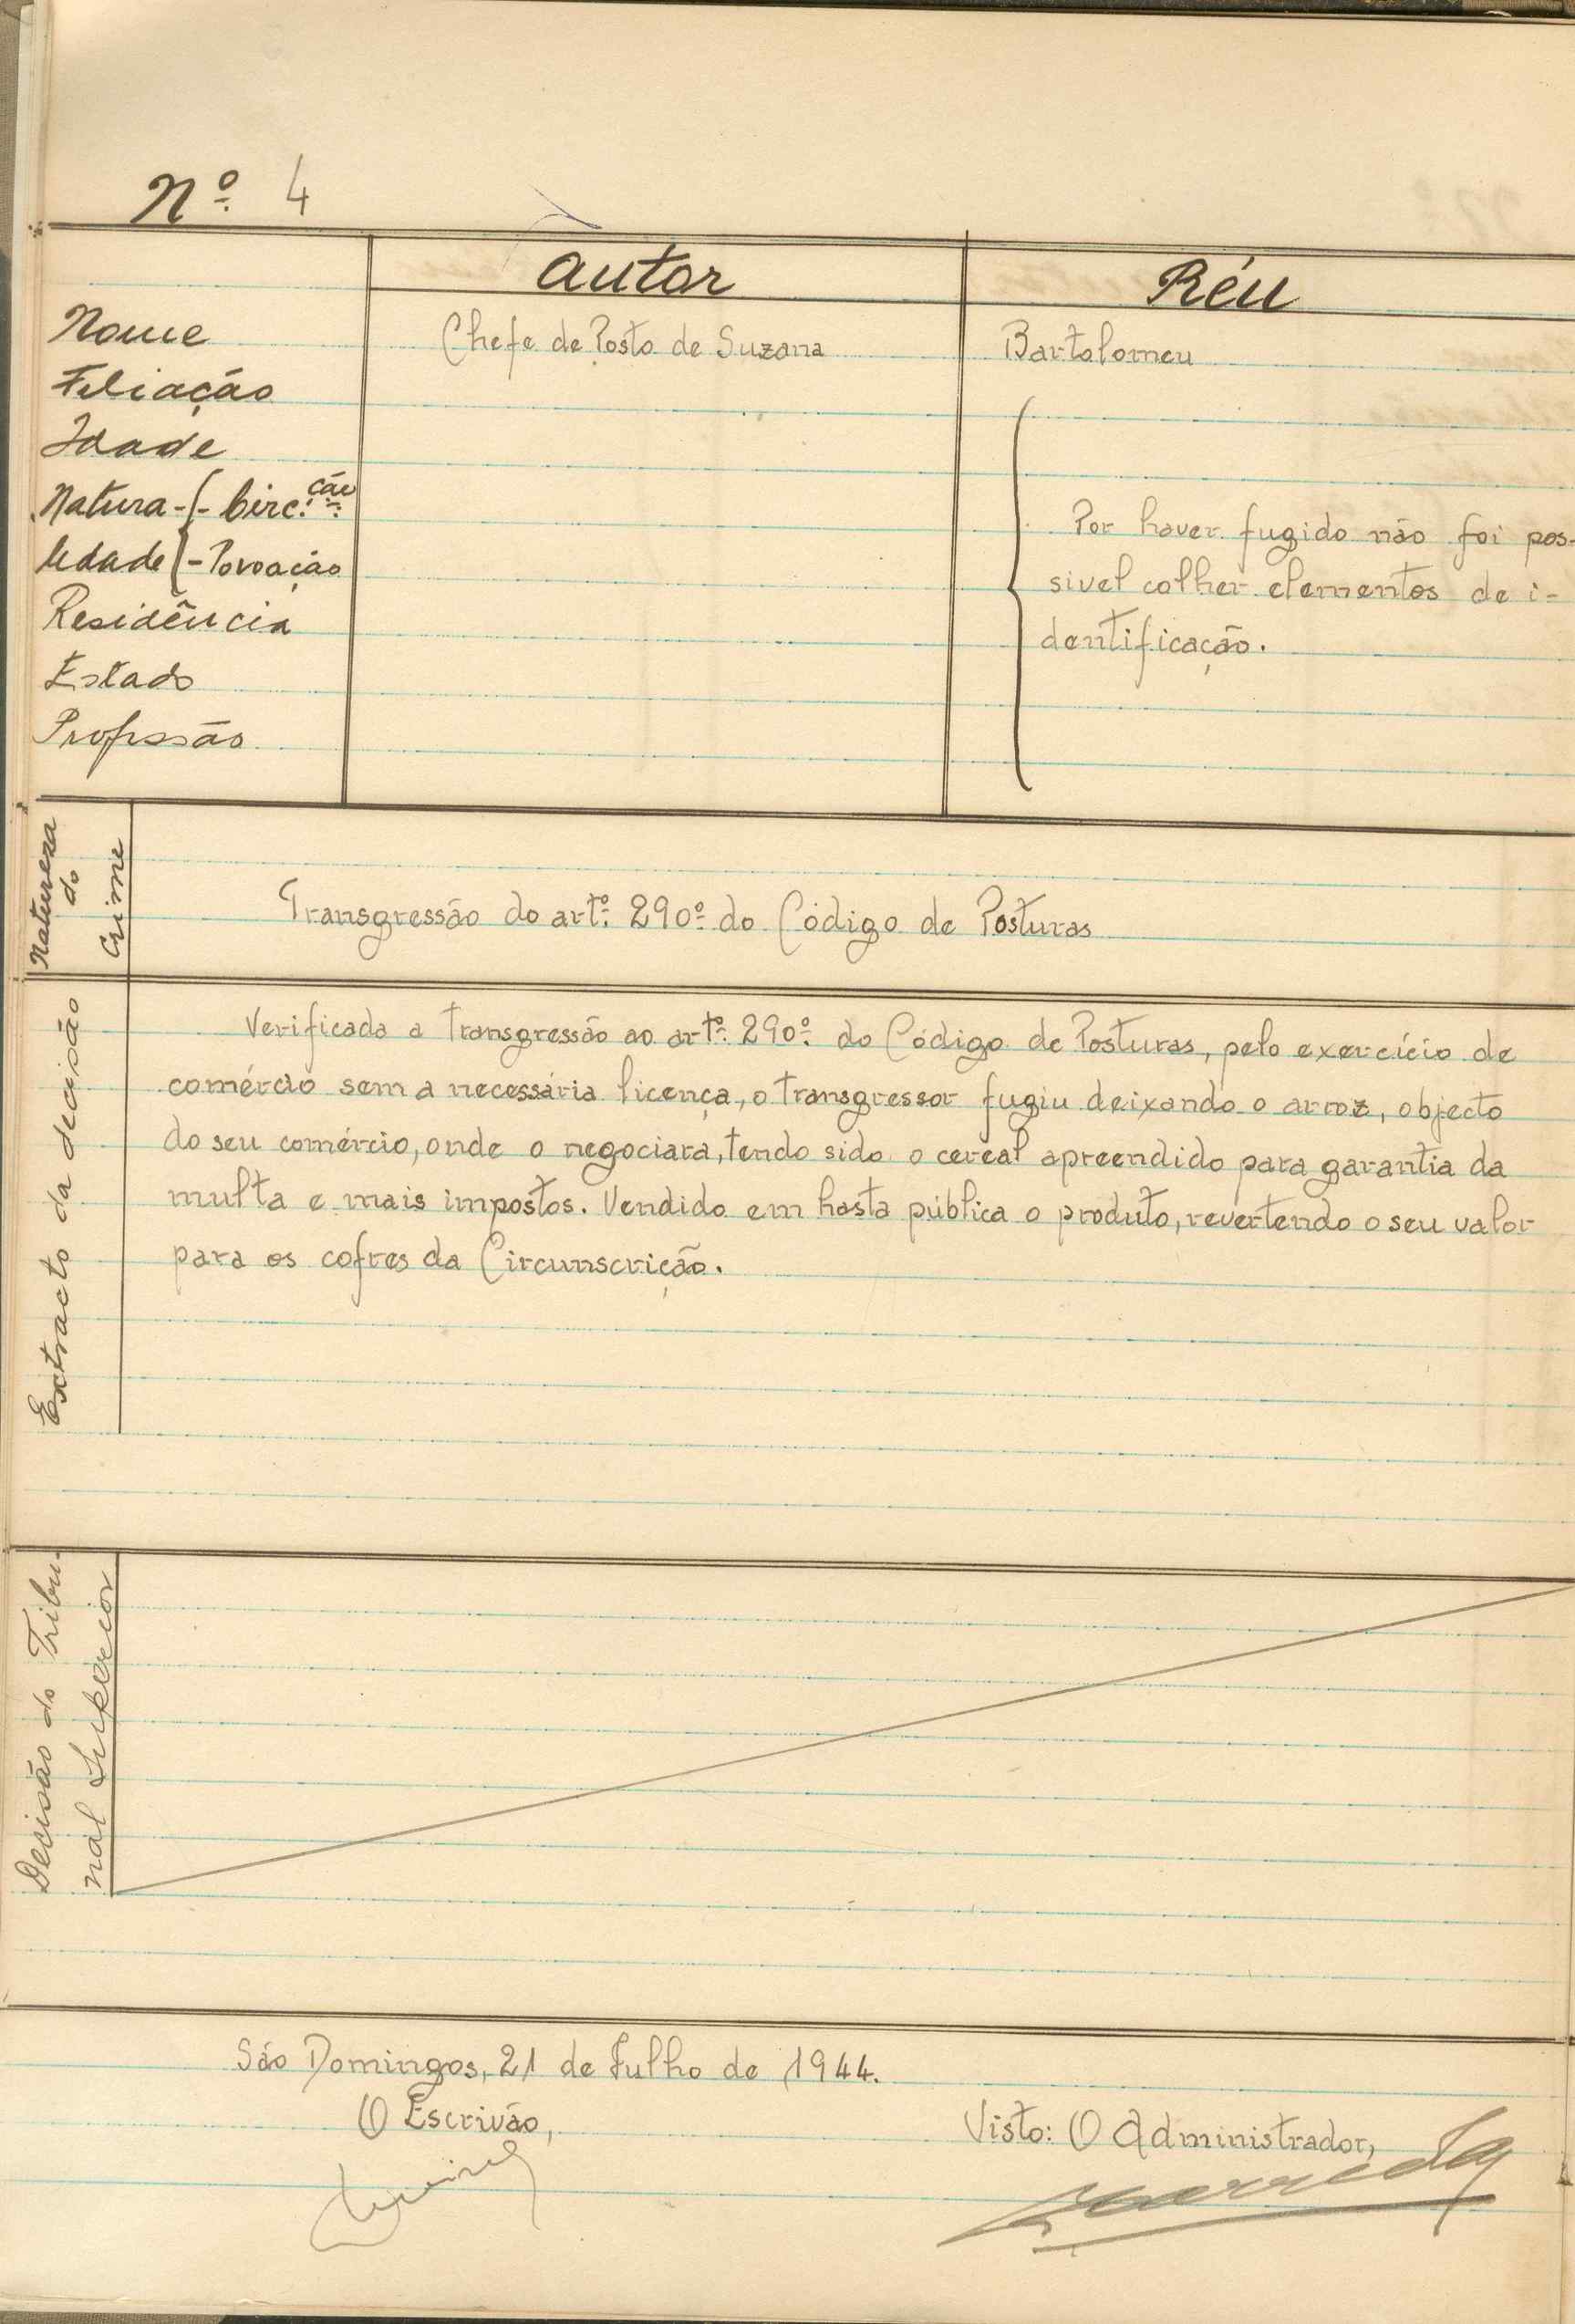 Nº 4
Autor Réu
Nome Chefe de Posto de Suzana Bartolomeu
Filiação
Idade
Natura- - Circ.ção Por haver fugido não foi pos-
lidade - Povoação sivel colher elementos de i-
Residência dentificação.
Estado
Profissão
Natureza
do
Crime
Transgressão do artº. 290º. do Código de Posturas
Extracto da decisão
Verificada a transgressão ao artº. 290º. do Código de Posturas, pelo exercício de
comércio sem a necessária licença, o transgressor fugiu deixando o arroz, objecto
do seu comércio, onde o negociara, tendo sido o cereal apreendido para garantia da
multa e mais impostos. Vendido em hasta pública o produto, revertendo o seu valor
para os cofres da Circunscrição.
Decisão do Tribu-
nal Superior
São Domingos, 21 de Julho de 1944.
O Escrivão,
Visto: O Administrador,